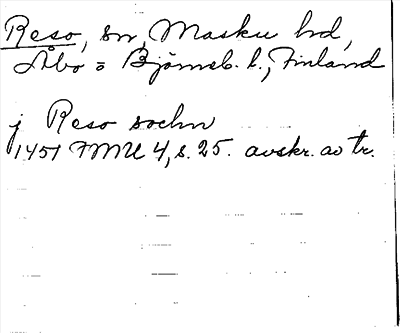 Reso, sn, Masku hd,
Åbo = Björneb. l., Finland
j Reso sochn
1451 FMU 4, s. 25. avskr. av tr.